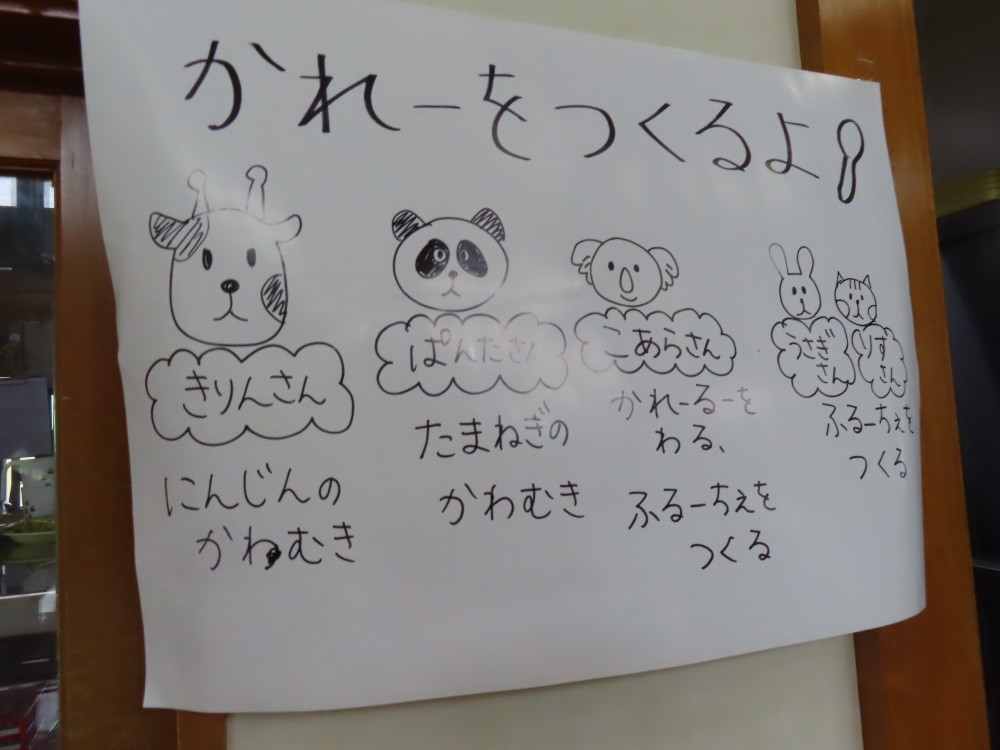 かれーをつくるよ!
きりんさん
にんじんの
かわむき
ぱんださん
たまねぎの
かわむき
こあらさん
かれーるーを
わる、
ふるーちぇを
つくる
うさぎ
さん
りす
さん
ふるーちぇを
つくる